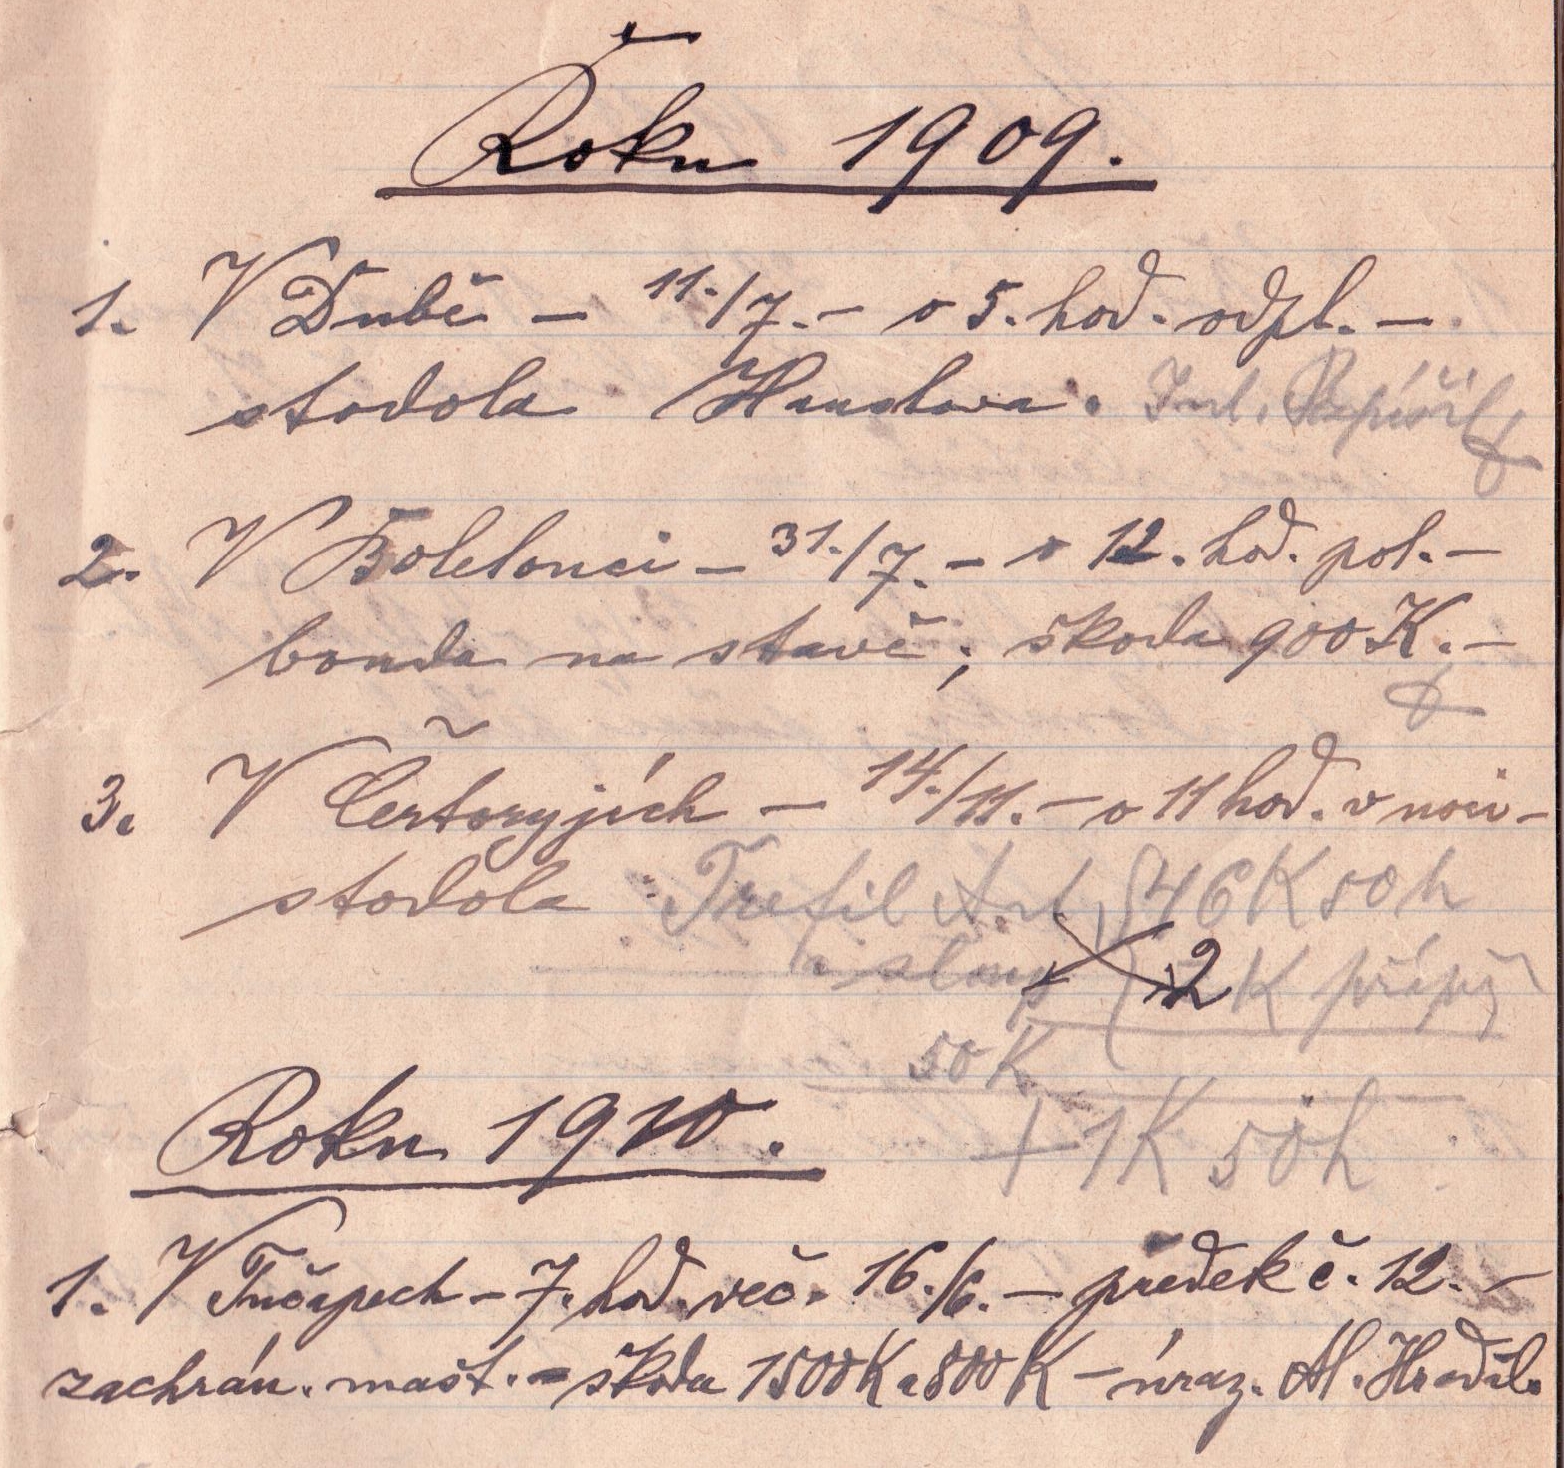 Roku 1909.
1. V Dubě – 11./7. – o 5. hod. odpl. –
stodola
2. V Bolelouci – 31./7. – o 12. hod. pol. –
bouda na stavě; škoda 900 K. –
3. V Čertoryjích – 14./11. – o 11 hod. v noci –
stodola Trefil Ant. 46 K 50 h
a sloup 2 K přípř
50 K
+ 1 K 50 h
Roku 1910.
1. V Tučapech – 7. hod. več. 16./6. – předek č. 12. –
zachrán. mašt. – škoda 1500 K a 800 K – úraz. Al. Hradil.